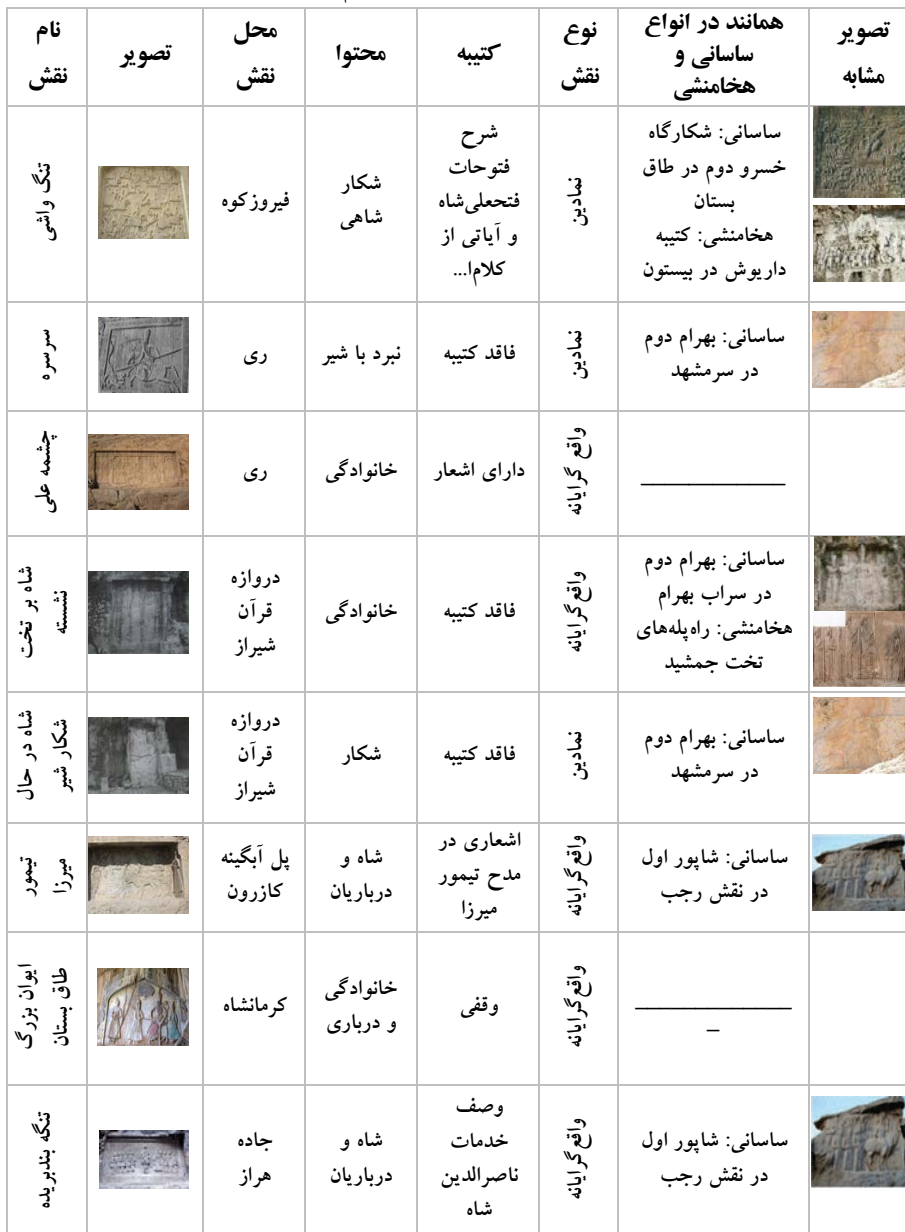 نام
نقش
تصویر
محل
نقش
محتوا
کتیبه
نوع
نقش
همانند در انواع
ساسانی و
هخامنشی
تصویر
مشابه
تنگ واشی
فیروزکوه
شکار
شاهی
شرح
فتوحات
فتحعلی‌شاه
و آیاتی از
کلام‌ا...
نمادین
ساسانی: شکارگاه
خسرو دوم در طاق
بستان
هخامنشی: کتیبه
داریوش در بیستون
سرسره
ری
نبرد با شیر
فاقد کتیبه
نمادین
ساسانی: بهرام دوم
در سرمشهد
چشمه علی
ری
خانوادگی
دارای اشعار
واقع گرایانه
شاه بر تخت
نشسته
دروازه
قرآن
شیراز
خانوادگی
فاقد کتیبه
واقع‌گرایانه
ساسانی: بهرام دوم
در سراب بهرام
هخامنشی: راه‌پله‌های
تخت جمشید
شاه در حال
شکار شیر
دروازه
قرآن
شیراز
شکار
فاقد کتیبه
نمادین
ساسانی: بهرام دوم
در سرمشهد
تیمور
میرزا
پل آبگینه
کازرون
شاه و
درباریان
اشعاری در
مدح تیمور
میرزا
واقع‌گرایانه
ساسانی: شاپور اول
در نقش رجب
ایوان بزرگ
طاق بستان
کرمانشاه
خانوادگی
و درباری
وقفی
واقع‌گرایانه
تنگه بندبریده
جاده
هراز
شاه و
درباریان
وصف
خدمات
ناصرالدین
شاه
واقع‌گرایانه
ساسانی: شاپور اول
در نقش رجب